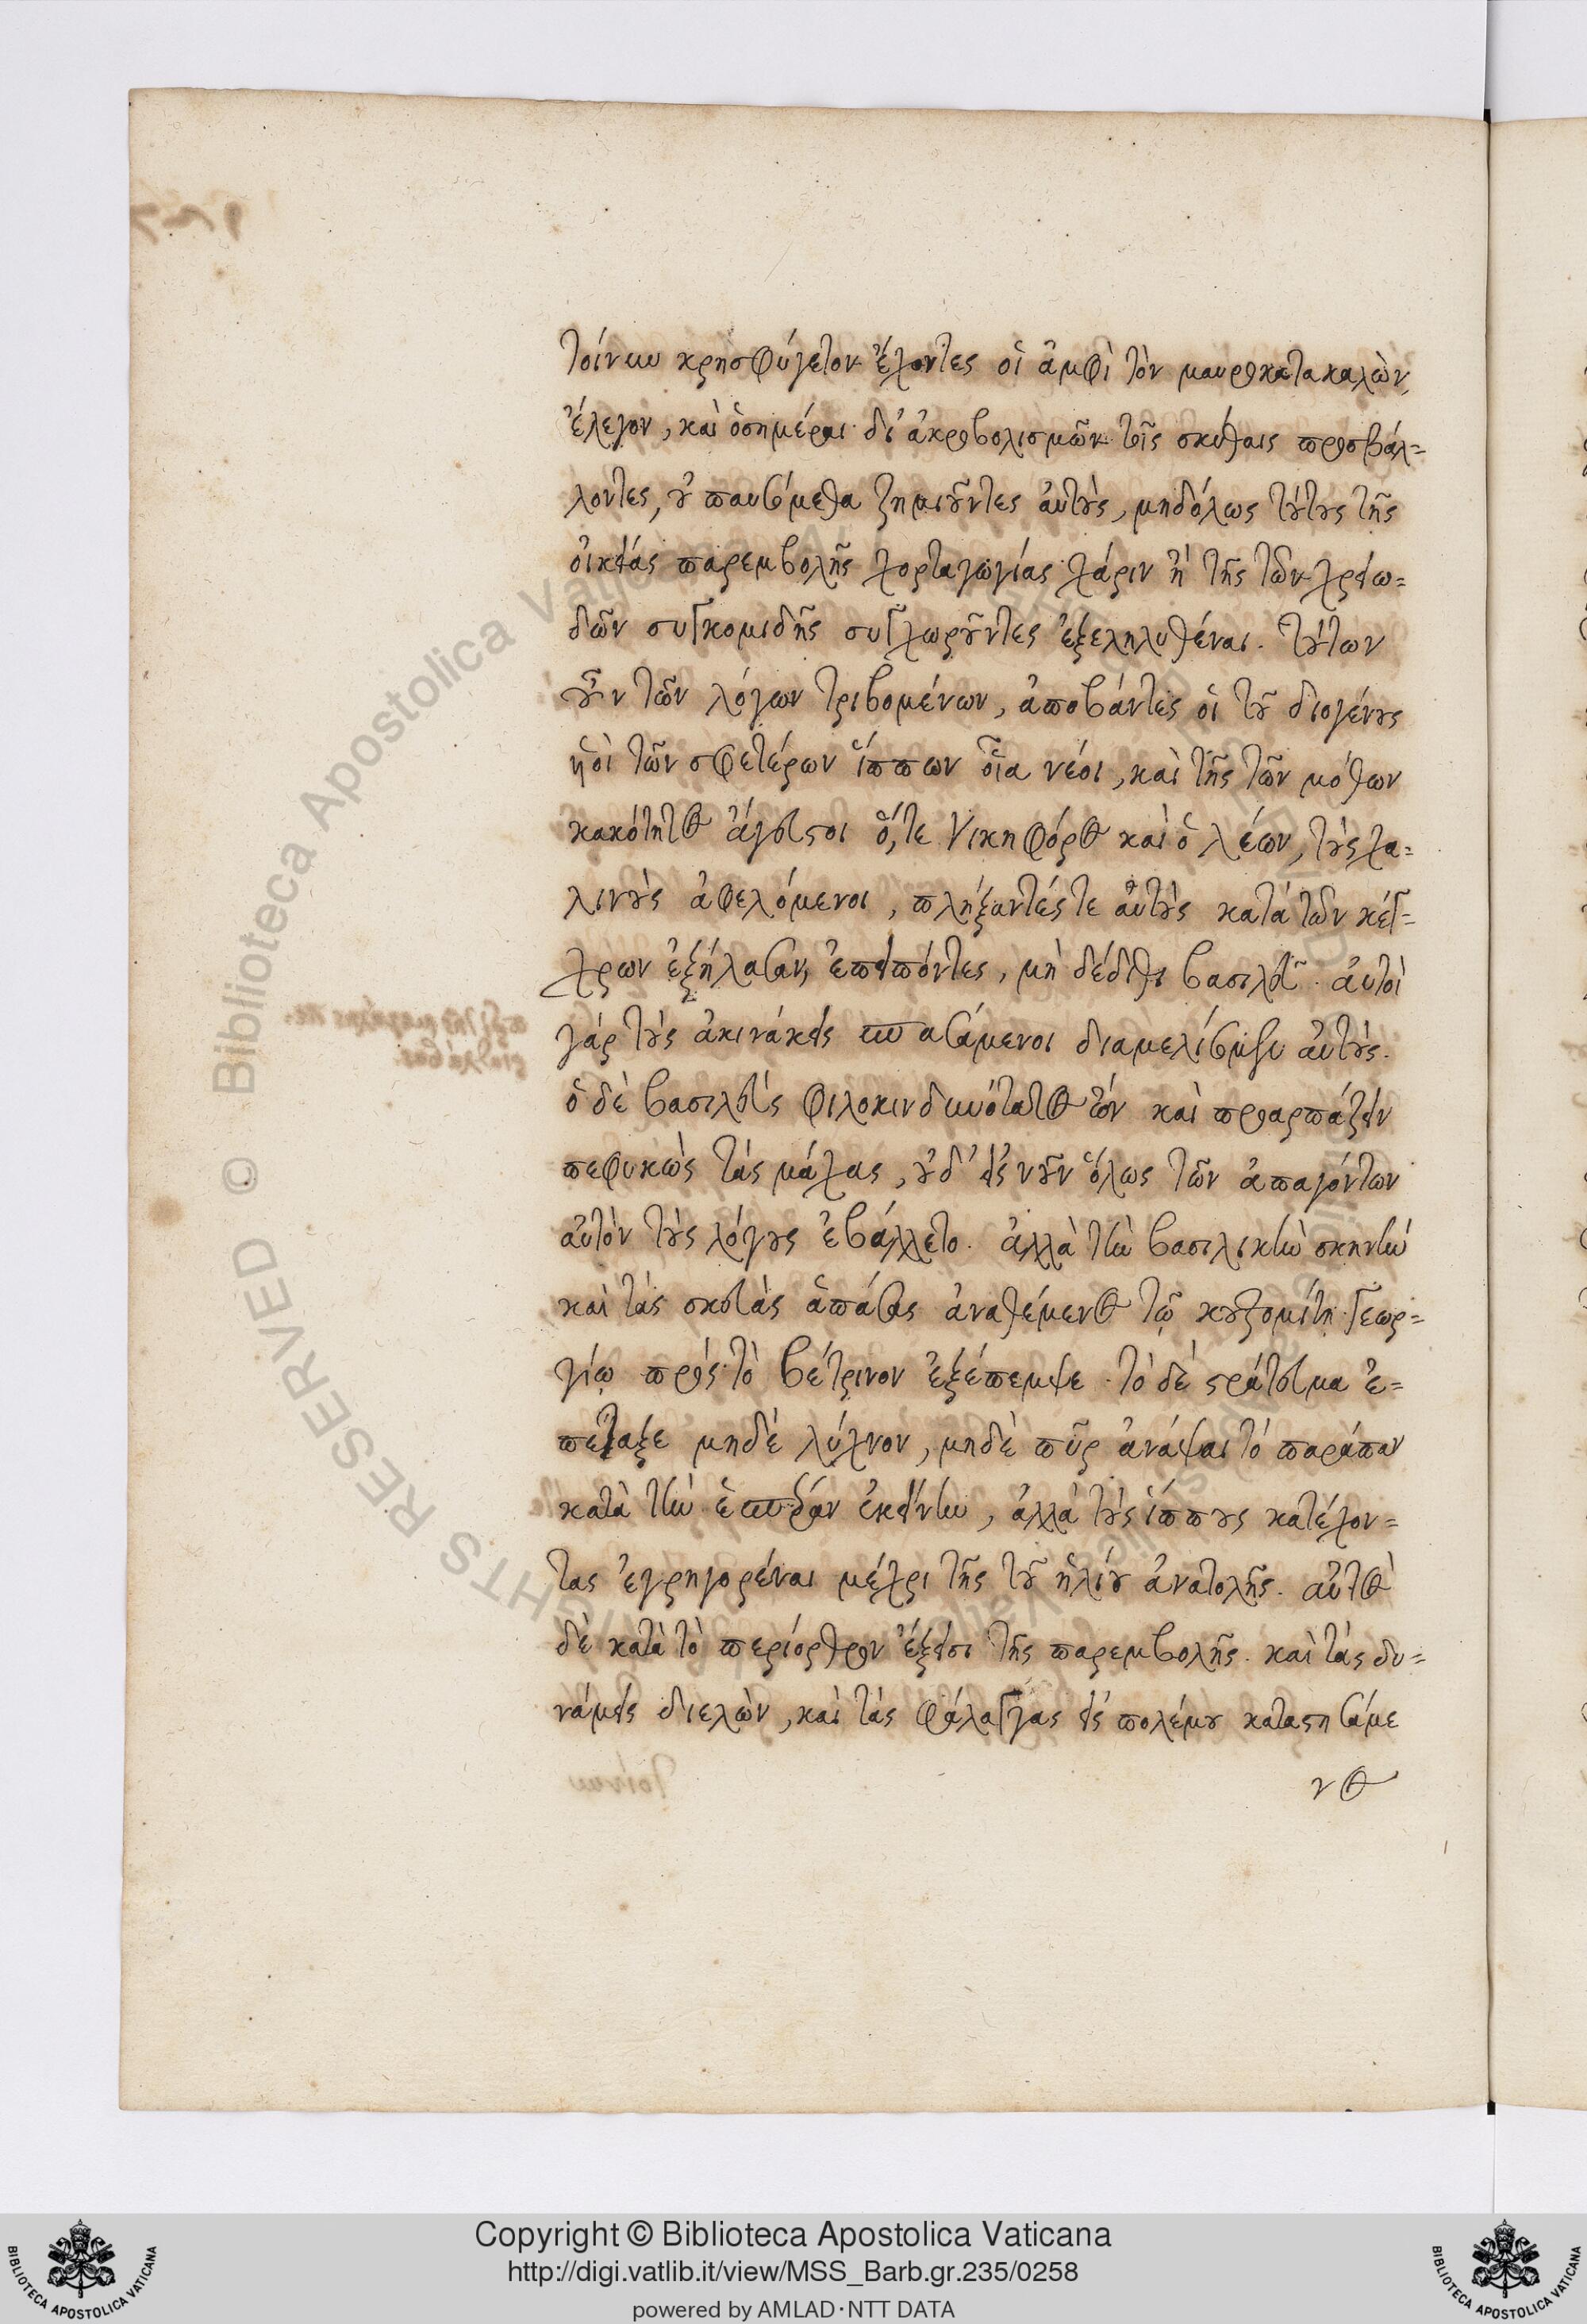 τοίνυν κρησφύγετον ἔχοντες οἱ ἀμφὶ τὸν μαυροκατακαλὼν
ἔλεγον, καὶ ὁσημέραι δι' ἀκροβολισμῶν τοῖς σκύθαις προσβάλ=
λοντες, οὐ παυσόμεθα ζημιοῦντες αὐτοὺς, μηδόλως τούτους τῆς
οἰκείας παρεμβολῆς χορταγωγίας χάριν ἢ τῆς τῶν χρειω=
δῶν συγκομιδῆς συγχωροῦντες ἐξεληλυθέναι. τούτων
οὖν τῶν λόγων τριβομένων, ἀποβάντες οἱ τοῦ διογένους
υἱοὶ τῶν σφετέρων ἵππων οἷα νέοι, καὶ τῆς τῶν μόθων
κακότητος ἄγευστοι ὅ, τε Νικηφόρος καὶ ὁ λέων, τοὺς χα=
λινοὺς ἀφελόμενοι, πλήξαντές τε αὐτοὺς κατὰ τῶν κέγ=
χρων ἐξήλασαν, ἐπειπόντες, μὴ δέδιθι βασιλεῦ. αὐτοὶ
γὰρ τοὺς ἀκινάκεις σπασάμενοι διαμελίσομεν αὐτούς.
ὁ δὲ βασιλεὺς φιλοκινδυνότατος ὢν καὶ προαρπάζειν
πεφυκὼς τὰς μάχας, οὐδ' εἰς νοῦν ὅλως τῶν ἀπαγόντων
αὐτὸν τοὺς λόγους ἐβάλλετο. ἀλλὰ τὴν βασιλικὴν σκηνὴν
καὶ τὰς σκευὰς ἁπάσας ἀναθέμενος τῷ κουζομίτῃ Γεωρ=
γίῳ πρὸς τὸ βέτρινον ἐξέπεμψε. τὸ δὲ στράτευμα ἐ=
πέταξε μηδὲ λύχνον, μηδὲ πῦρ ἀνάψαι τὸ παράπαν
κατὰ τὴν ἑσπέραν ἐκείνην, ἀλλὰ τοὺς ἵππους κατέχον=
τας ἐγρηγορέναι μέχρι τῆς τοῦ ἡλίου ἀνατολῆς. αὐτὸς
δὲ κατὰ τὸ περίορθρον ἔξεισι τῆς παρεμβολῆς. καὶ τὰς δυ=
νάμεις διελὼν, καὶ τὰς φάλαγγας εἰς πολέμου καταστησάμε
νος
Copyright © Biblioteca Apostolica Vaticana
http://digi.vatlib.it/view/MSS_Barb.gr.235/0258
powered by AMLAD·NTT DATA